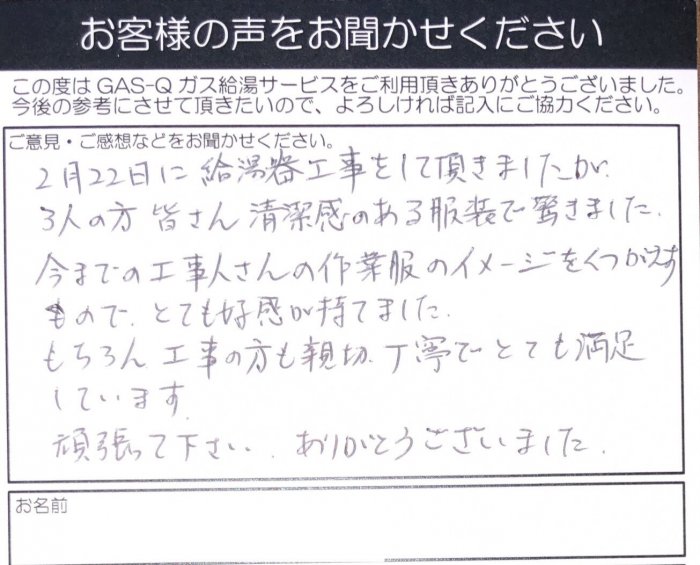 お客様の声をお聞かせください
この度はGAS-Qガス給湯サービスをご利用頂きありがとうございました。
今後の参考にさせて頂きたいので、よろしければ記入にご協力ください。
ご意見・ご感想などをお聞かせください。
2月22日に給湯器工事をして頂きましたが、
3人の方皆さん清潔感のある服装で驚きました。
今までの工事人さんの作業服のイメージをくつがえす
もので、とても好感が持てました。
もちろん、工事の方も親切、丁寧でとても満足
しています。
頑張って下さい。ありがとうございました。
お名前